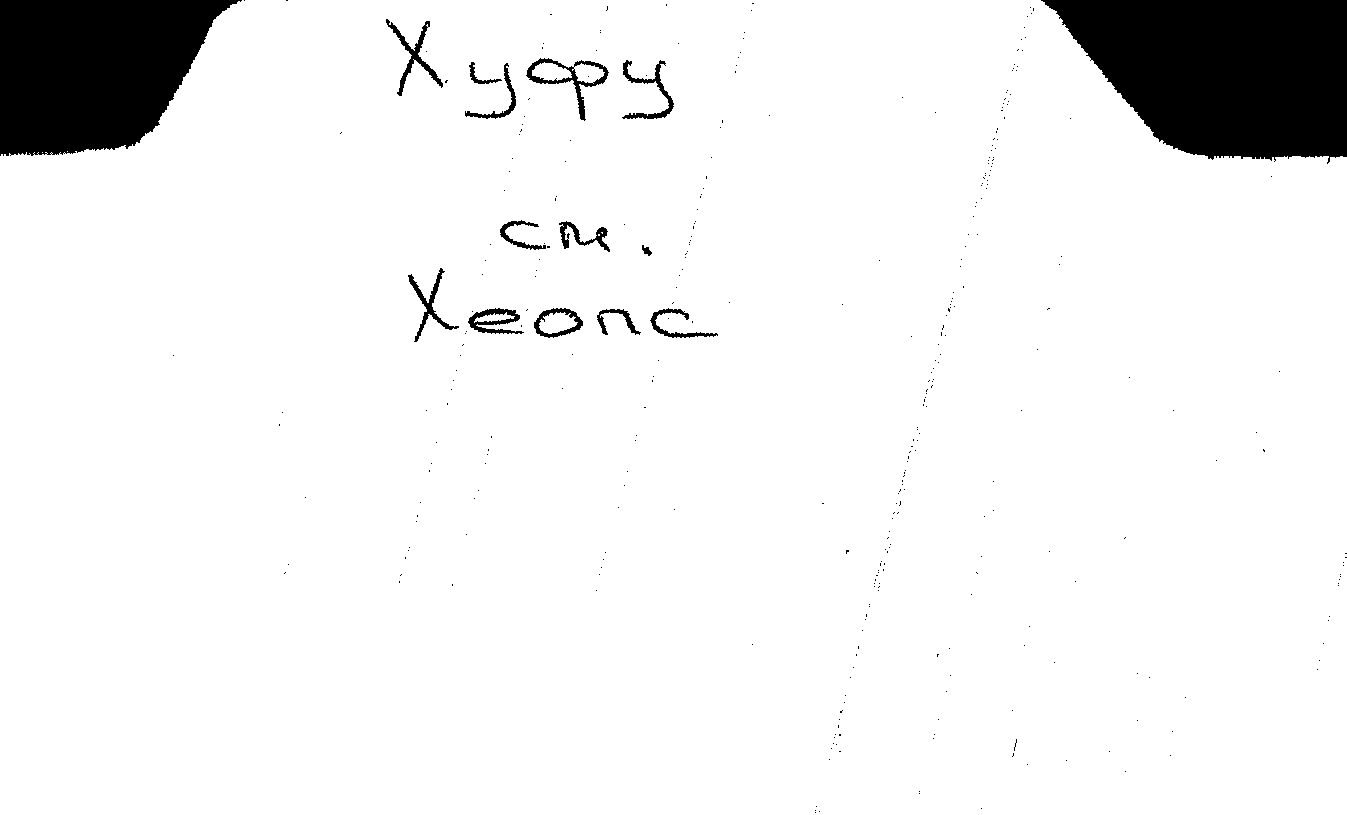 Хуфу
см.
Хеопс